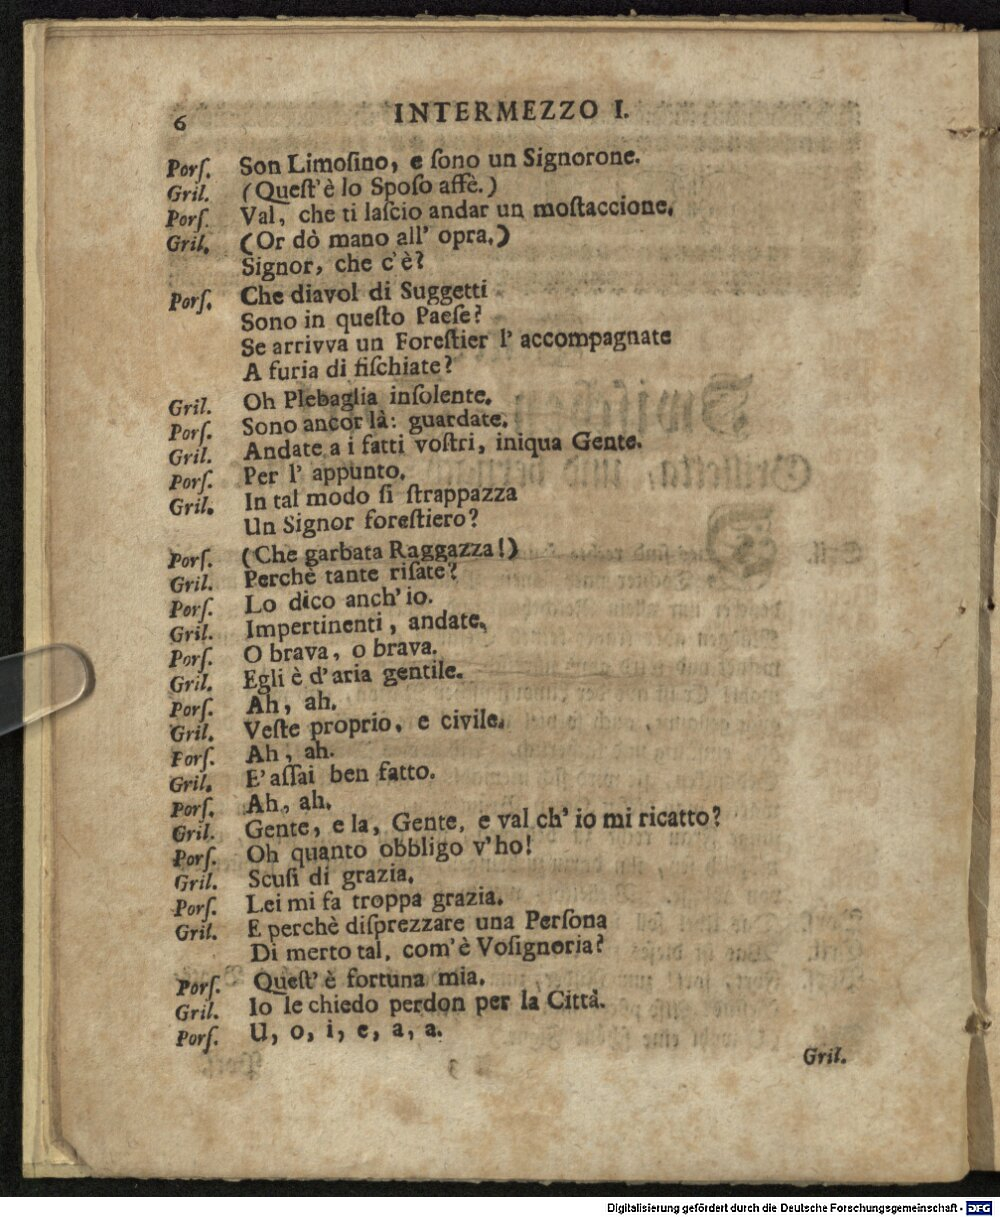 6
INTERMEZZO I.
Porſ. Son Limoſino, e ſono un Signorone.
Gril. (Queſt'è lo Spoſo affè.)
Porſ. Val, che ti laſcio andar un moſtaccione.
Gril. (Or dò mano all' opra.)
Signor, che c'è?
Porſ. Che diavol di Suggetti
Sono in queſto Paeſe?
Se arrivva un Foreſtier l' accompagnate
A furia di fiſchiate?
Gril. Oh Plebaglia inſolente.
Porſ. Sono ancor là: guardate.
Gril. Andate a i fatti voſtri, iniqua Gente.
Porſ. Per l' appunto.
Gril. In tal modo ſi ſtrappazza
Un Signor foreſtiero?
Porſ. (Che garbata Raggazza!)
Gril. Perchè tante riſate?
Porſ. Lo dico anch' io.
Gril. Impertinenti, andate.
Porſ. O brava, o brava.
Gril. Egli è d'aria gentile.
Porſ. Ah, ah.
Gril. Veſte proprio, e civile.
Porſ. Ah, ah.
Gril. E' aſſai ben fatto.
Porſ. Ah, ah.
Gril. Gente, e la, Gente, e val ch' io mi ricatto?
Porſ. Oh quanto obbligo v'ho!
Gril. Scuſi di grazia.
Porſ. Lei mi fa troppa grazia.
Gril. E perchè diſprezzare una Perſona
Di merto tal, com'è Voſignoria?
Porſ. Queſt' è fortuna mia.
Gril. Io le chiedo perdon per la Città.
Porſ. U, o, i, e, a, a.
Gril.
Digitalisierung gefördert durch die Deutsche Forschungsgemeinschaft - DFG